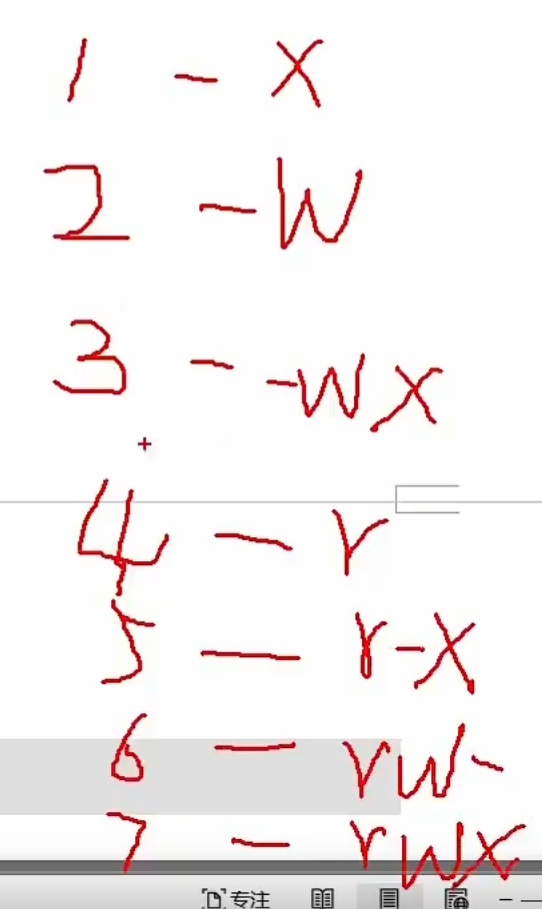 1 - x
2 - W
3 - -Wx
4 - r
5 - r-x
6 - rW-
7 - rWx
专注